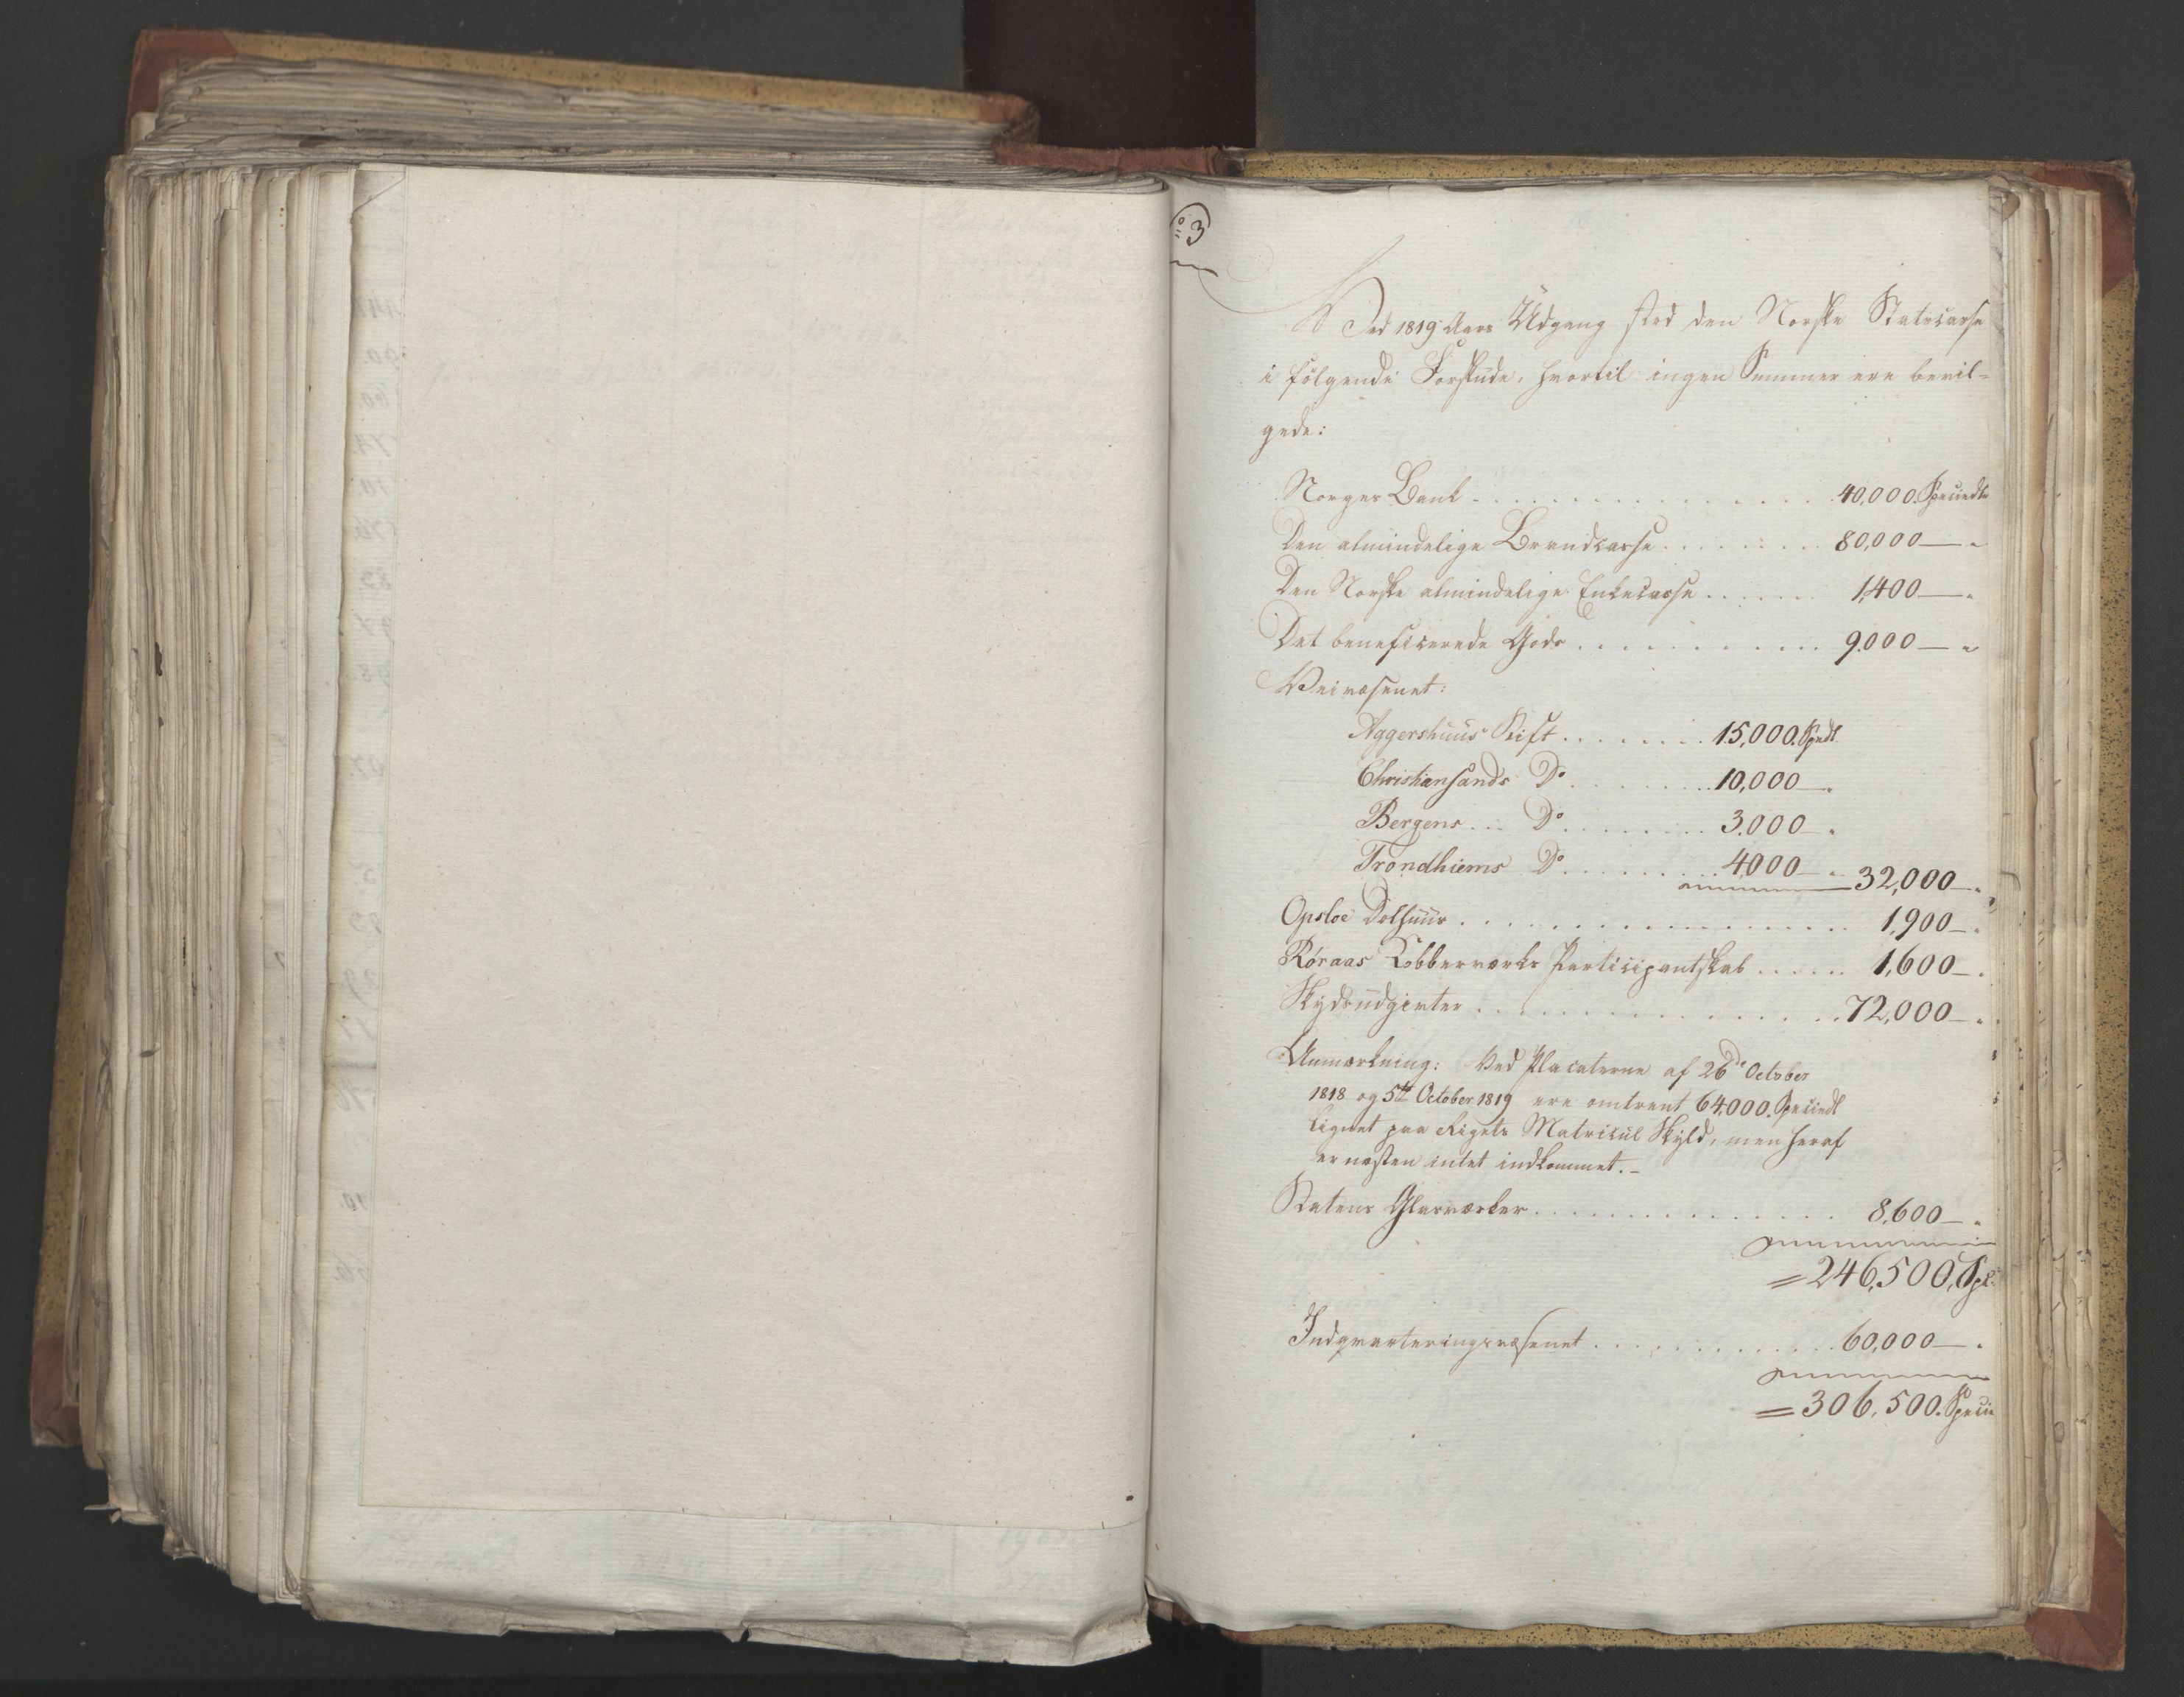 No 3
Ved 1819 Aars Udgang stod den Norske Statscasse
i følgende Forskude, hvortil ingen Summer ere bevil-
gede:
Norges Bank . . . . . . 40,000. Speciedlr
Den almindelige Brandcasse . . . . . . 80,000 — "
Den Norske almindelige Enkecasse . . . . . . 1,400 — "
Det beneficerede Gods . . . . . . 9,000 — "
Veivæsenet:
Aggershuus Stift . . . . . . 15,000. Spdl.
Christiansands Do . . . . . . 10,000 — "
Bergens . . . Do . . . . . . 3,000 — "
Trondhiems Do . . . . . . 4,000 — " 32,000 — "
Opsloe Dolhuus . . . . . . 1,900 — "
Røraas Kobberværks Participantskab . . . . . . 1,600 — "
Skydsudgivter . . . . . . 72,000 — "
Anmærkning: Ved Placaterne af 26de October
1818 og 5te October 1819 ere omtrent 64,000. Speciedl
lignet paa Rigets Matricul Skyld, men heraf
er næsten intet indkommet. –
Statens Glasværker . . . . . . 8,600 — "
= 246,500, Spd.
Indqvarteringsvæsenet . . . . . . 60,000 — "
= 306,500. Specie